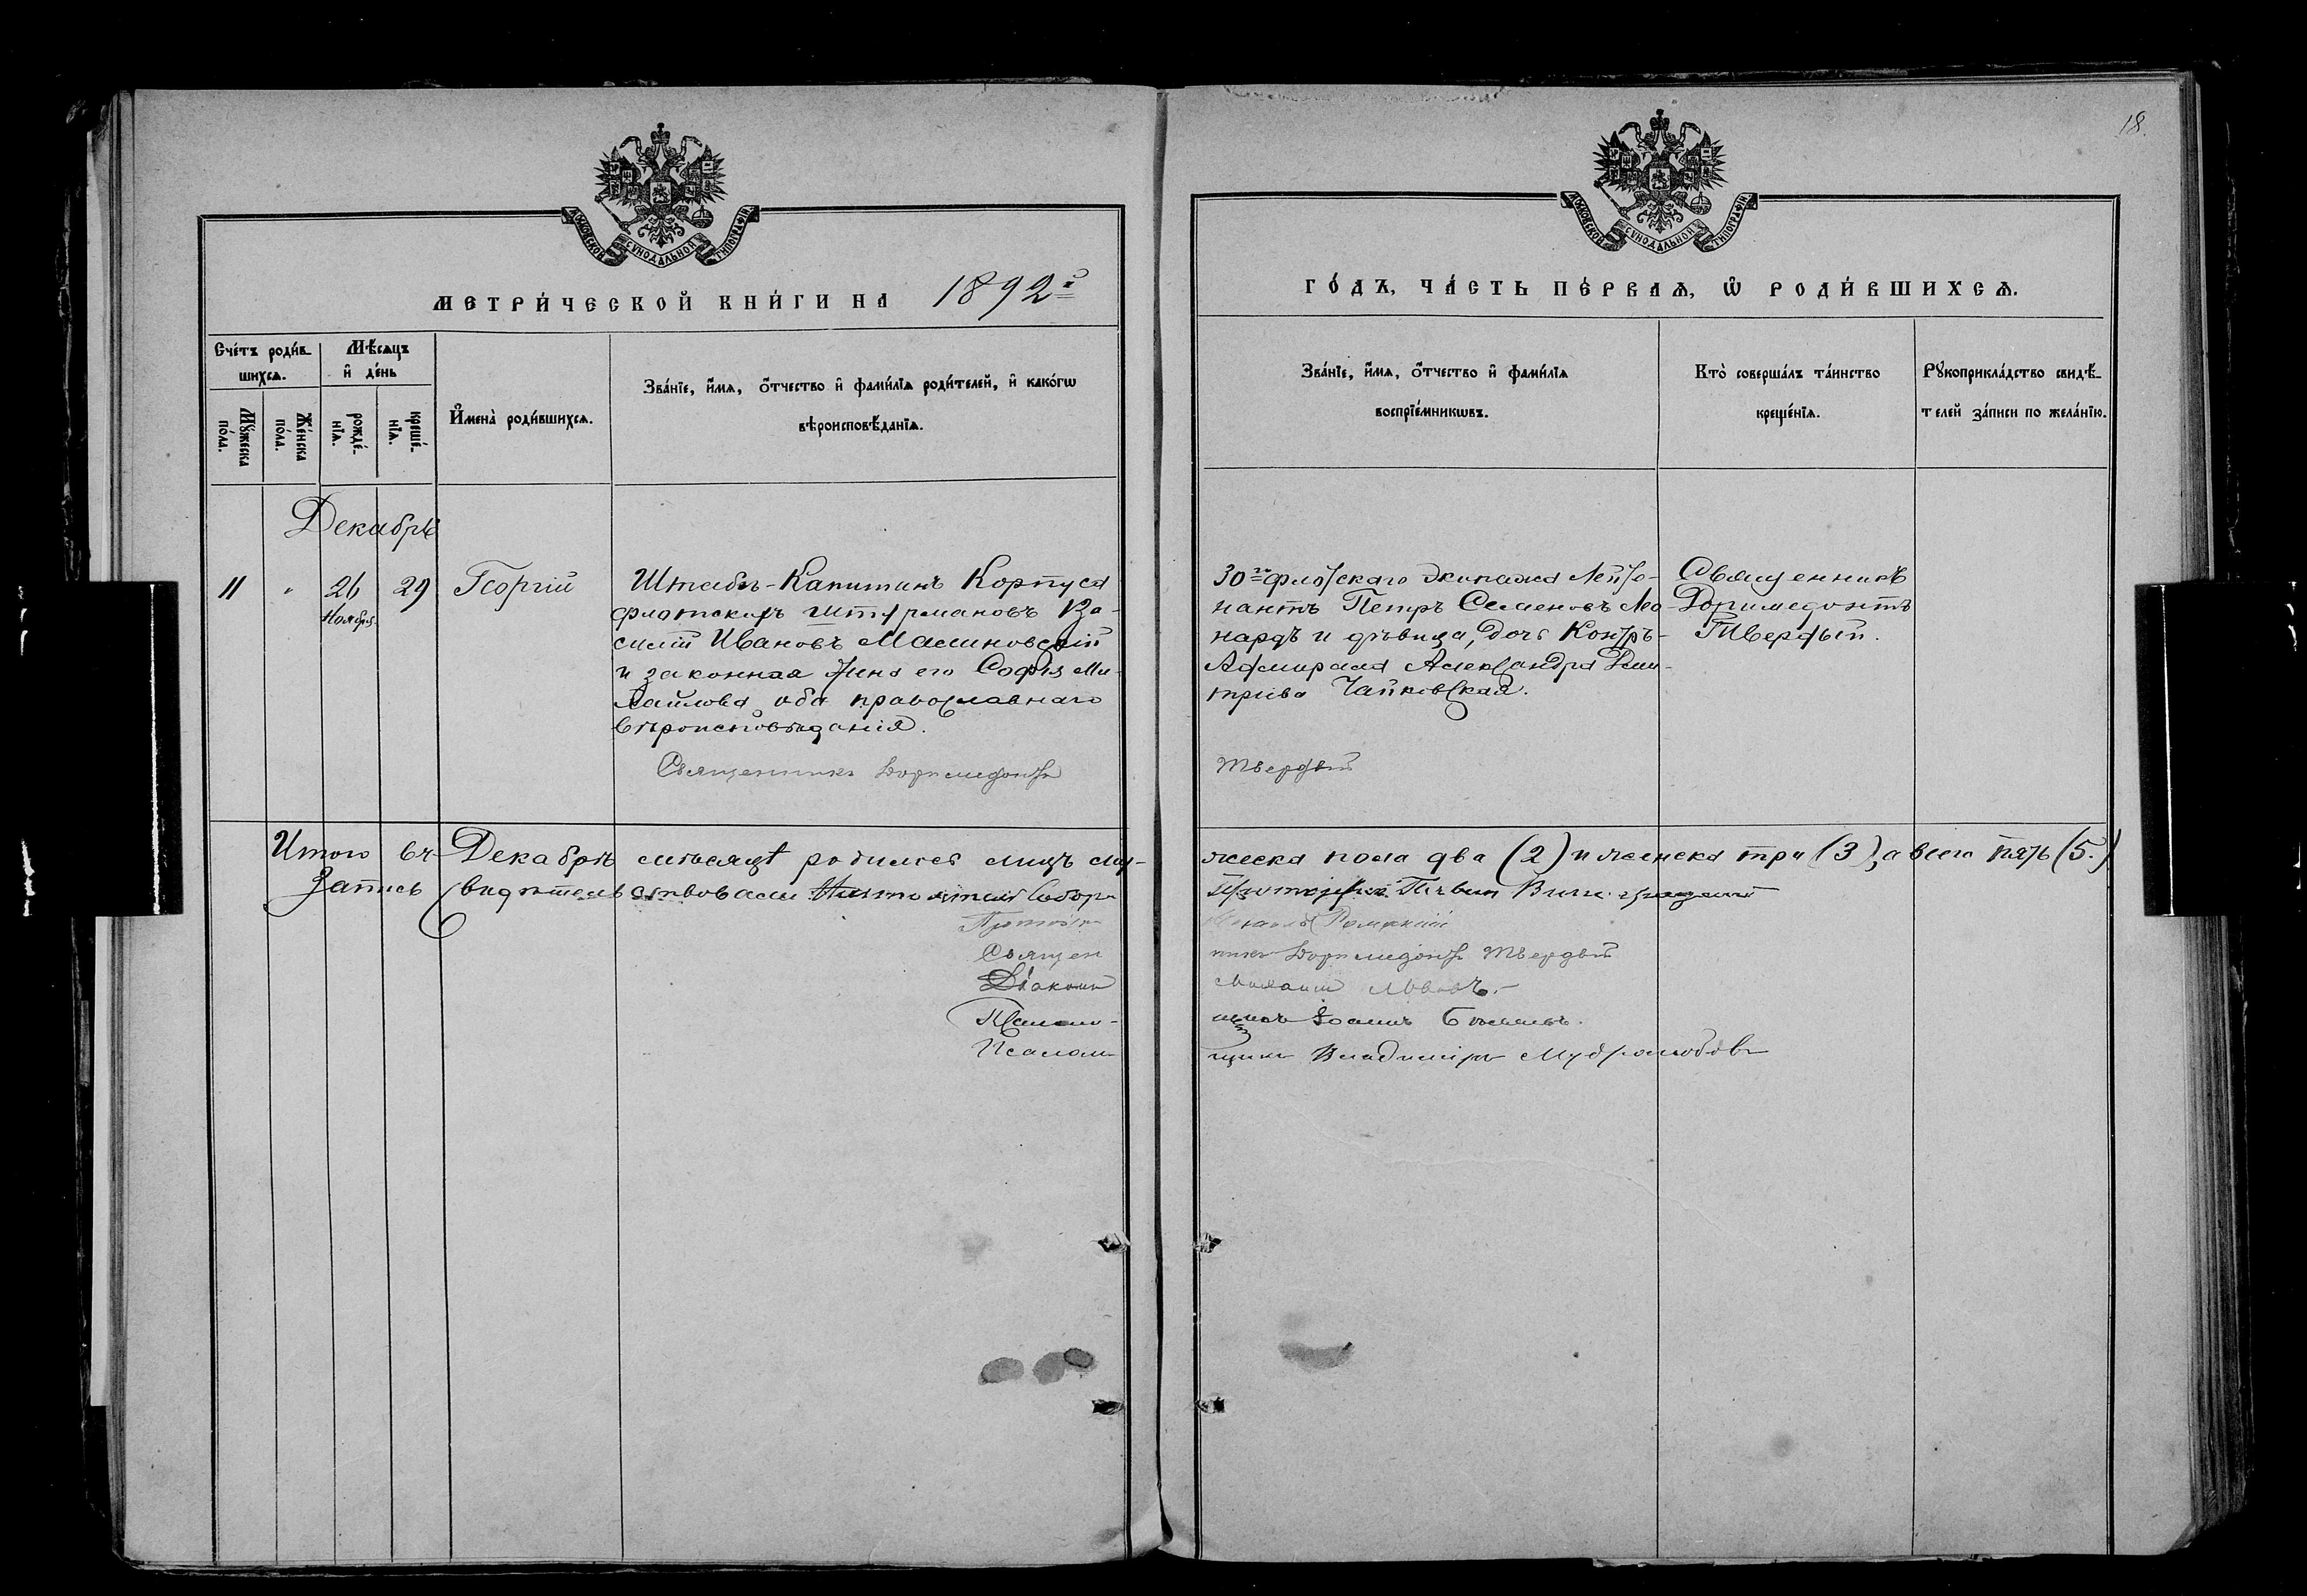 18.
МОСКОВСКОЙ СУНОДАЛЬНОЙ ТИПОГРАФІИ.
МОСКОВСКОЙ СУНОДАЛЬНОЙ ТИПОГРАФІИ.
МЕТРИ́ЧЕСКОЙ КНИ́ГИ НА 1892й
ГО́ДЪ, ЧА́СТЬ ПЕ́РВАѦ, Ѡ҆ РОДИ́ВШИХСѦ.
Сче́тъ роди́в-
шихсѧ.
Мꙋ́жеска
по́ла.
Же́нска
по́ла.
Мѣ́сѧцъ
и҆ де́нь
рожде́-
нїѧ.
креще́-
нїѧ.
И҆мена̀ роди́вшихсѧ.
Зва́нїе, и҆́мѧ, ѻ҆́тчество и҆ фами́лїѧ роди́телей, и҆ како́гѡ
вѣроисповѣ́данїѧ.
Зва́нїе, и҆́мѧ, ѻ҆́тчество и҆ фами́лїѧ
воспрїе́мникѡвъ.
Кто̀ соверша́лъ та́инство
креще́нїѧ.
Рꙋкоприкла́дство свидѣ́-
телей за́писи по жела́нїю.
Декабрь
11 " 26 29 Георгій
Ноября
Штабсъ-Капитанъ Корпуса
флотскихъ штурмановъ Ва-
силій Ивановъ Малиновскій
и законная жена его Софія Ми-
хайлова, оба православнаго
вѣроисповѣданія.
Священникъ Доримедонтъ
30го флотскаго экипажа Лейте-
нантъ Петръ Семеновъ Мо-
нардъ и дѣвица, дочь Контръ-
Адмирала Александра Дми-
тріева Чайковская.
Твердый
Священникъ
Доримедонтъ
Твердый.
Итого въ Декабрѣ мѣсяцѣ родилось лицъ му-
жеска пола два (2) и женска три (3), а всего пять (5.)
Запись свидѣтельствовали
Протоіерей
Священ
никъ Доримедонтъ Твердый
Діаконъ
Львовъ.
Псалом-
щикъ Іоаннъ
Псалом
щикъ Владиміръ Мудролюбовъ